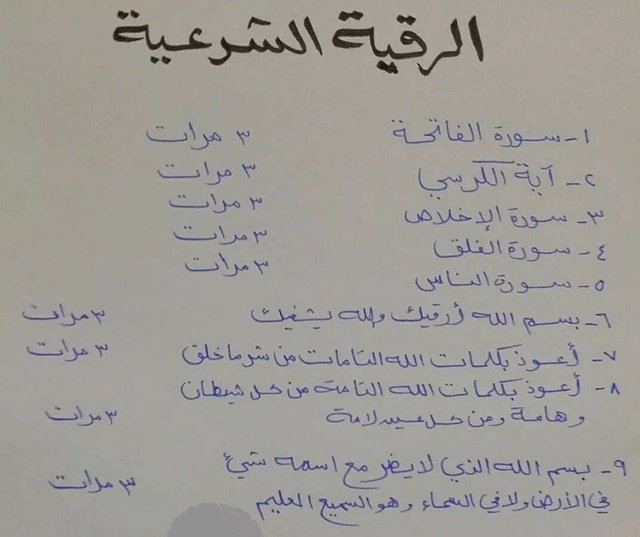 الرقية الشرعية
١- سورة الفاتحة ٣ مرات
٢- آية الكرسي ٣ مرات
٣- سورة الإخلاص ٣ مرات
٤- سورة الفلق ٣ مرات
٥- سورة الناس ٣ مرات
٦- بسم الله أرقيك والله يشفيك ٣ مرات
٧- أعوذ بكلمات الله التامات من شر ما خلق ٣ مرات
٨- أعوذ بكلمات الله التامة من كل شيطان
وهامة ومن كل عين لامة ٣ مرات
٩- بسم الله الذي لا يضر مع اسمه شيئ
في الأرض ولا في السماء وهو السميع العليم ٣ مرات